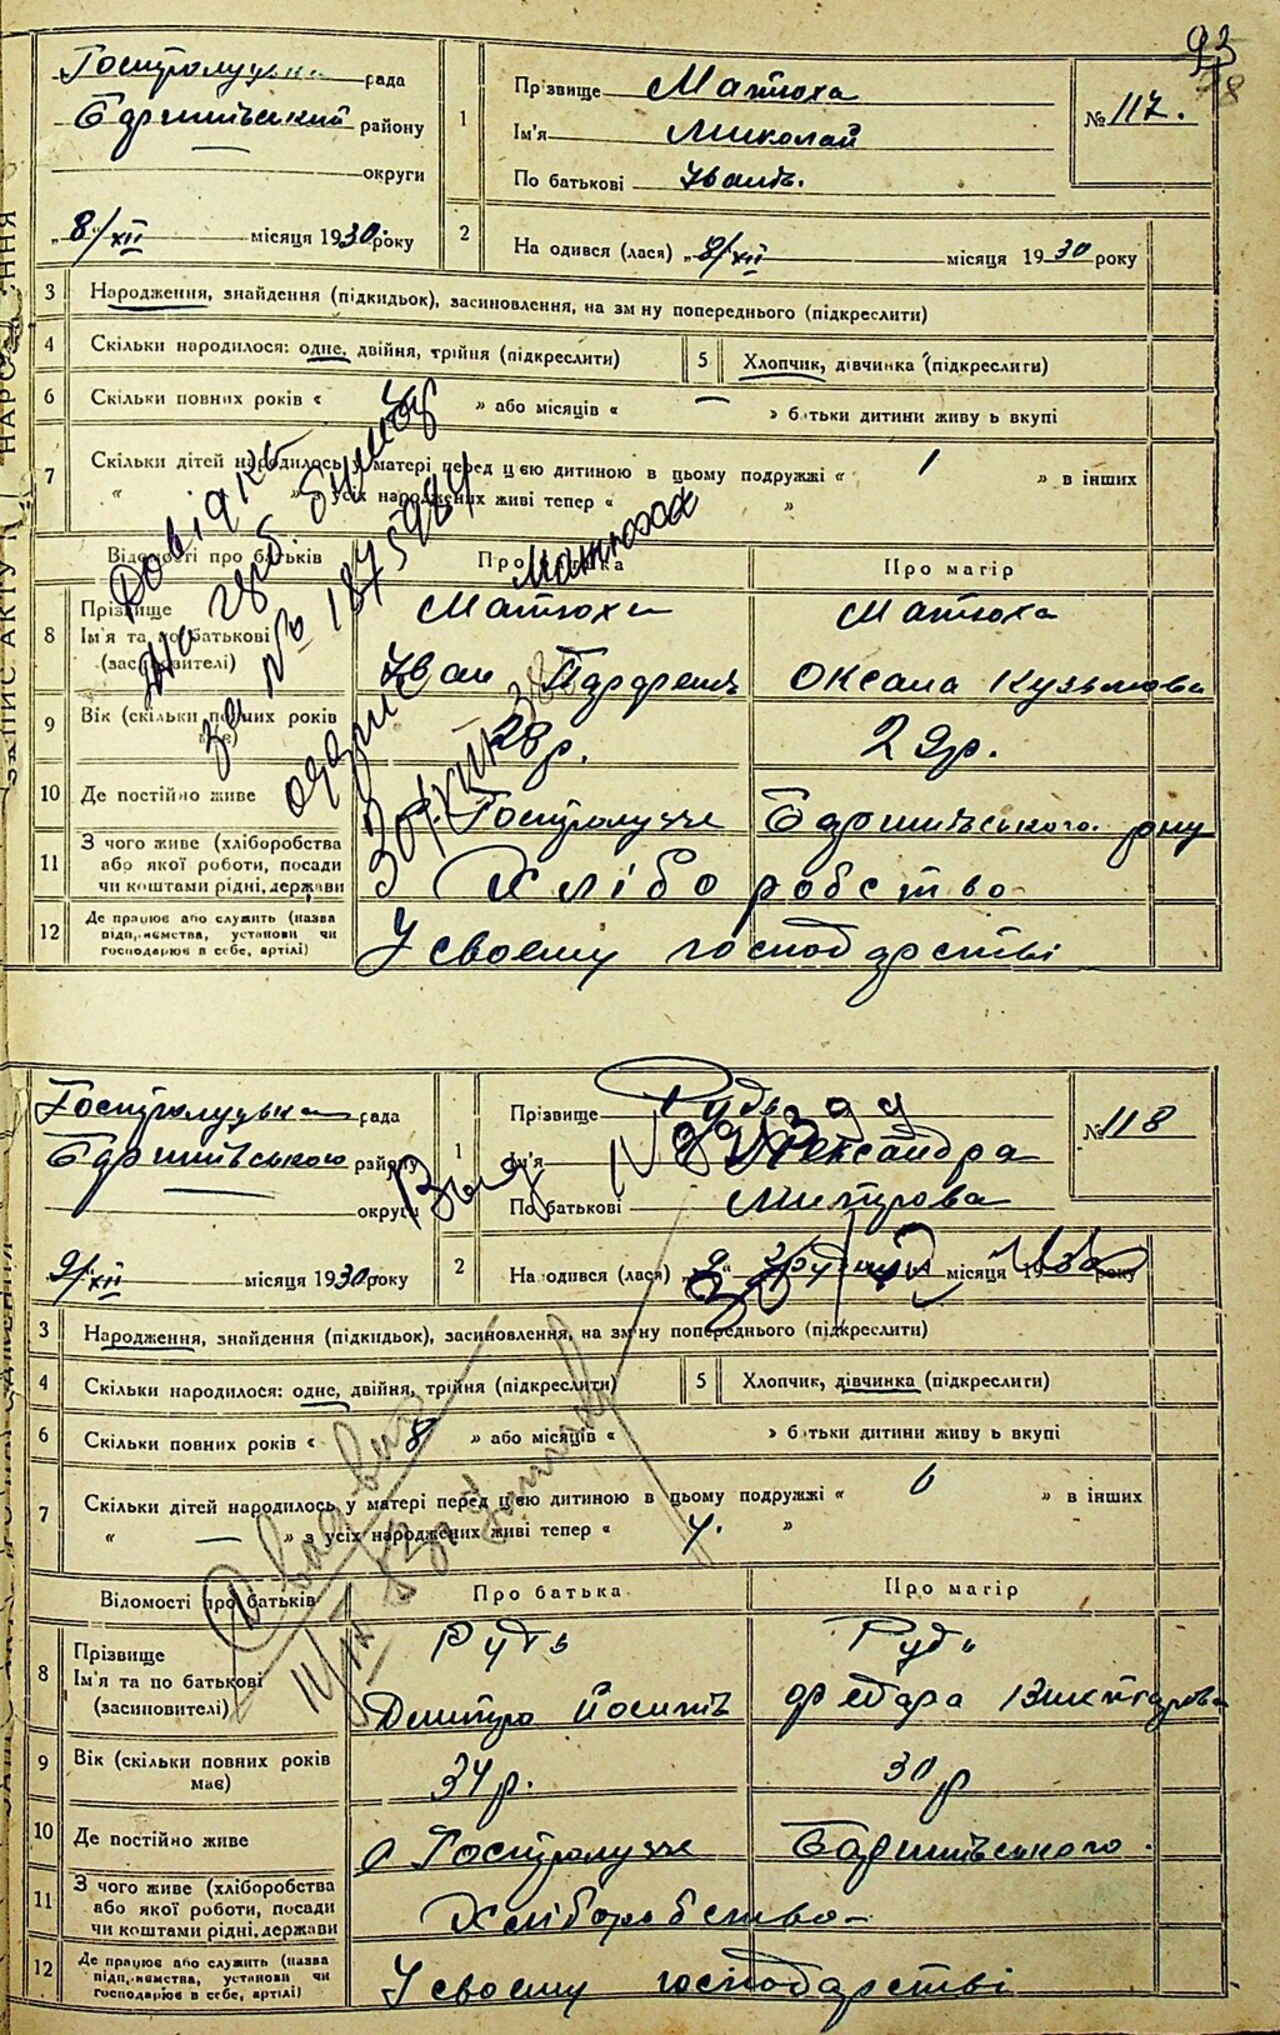 93
Гостролуцька рада
Баришівський району
округи
„8/XII місяця 1930 року
1
Прізвище Матюха
Ім'я Миколай
По батькові Іванів.
№ 117.
2
На одився (лася) „8/XII місяця 1930 року
3 Народження, знайдення (підкидьок), засиновлення, на зм ну попереднього (підкреслити)
4 Скільки народилося: одне, двійня, трійня (підкреслити)
5 Хлопчик, дівчинка (підкреслити)
6 Скільки повних років « » або місяців « » б тьки дитини живу ь вкупі
7 Скільки дітей народилось у матері перед цією дитиною в цьому подружжі « 1 » в інших
“ » з усіх народжених живі тепер « »
Довідка
за № 187
Матюха
Відомості про батьків Про батька Про матір
8 Прізвище
Ім'я та по батькові
(засиновителі)
Матюха Матюха
Іван Парфенів Оксана Кузьмова
9 Вік (скільки повних років має) 28 р. 29 р.
10 Де постійно живе с. Гостролуччє Баришівського р-ну
11 З чого живе (хліборобства
або якої роботи, посади
чи коштами рідні, держави
Хліборобство
12 Де працює або служить (назва
підприємства, установи чи
господарює в себе, артілі)
У своєму господарстві
Гостролуцька рада
Баришівською району
округи
9/XII місяця 1930 року
1
Прізвище Рудь
Ім'я Олександра
По батькові Митрова
№ 118
2
На одився (лася) „9“ грудня місяця 1930 року
3 Народження, знайдення (підкидьок), засиновлення, на зм'ну попереднього (підкреслити)
4 Скільки народилося: одне, двійня, трійня (підкреслити)
5 Хлопчик, дівчинка (підкреслити)
6 Скільки повних років « 8 » або місяців « » б тьки дитини живу ь вкупі
7 Скільки дітей народилось у матері перед цією дитиною в цьому подружжі « 6 » в інших
“ — » з усіх народжених живі тепер « 4. »
Відомості про батьків Про батька Про матір
8 Прізвище
Ім'я та по батькові
(засиновителі)
Рудь Рудь
Дмитро Йосипів Федора Вікторова
9 Вік (скільки повних років
має)
34 р. 30 р
10 Де постійно живе с Гостролуччє Баришівського.
11 З чого живе (хліборобства
або якої роботи, посади
чи коштами рідні, держави
Хліборобство
12 Де працює або служить (назва
підприємства, установи чи
господарює в себе, артілі)
У своєму господарстві